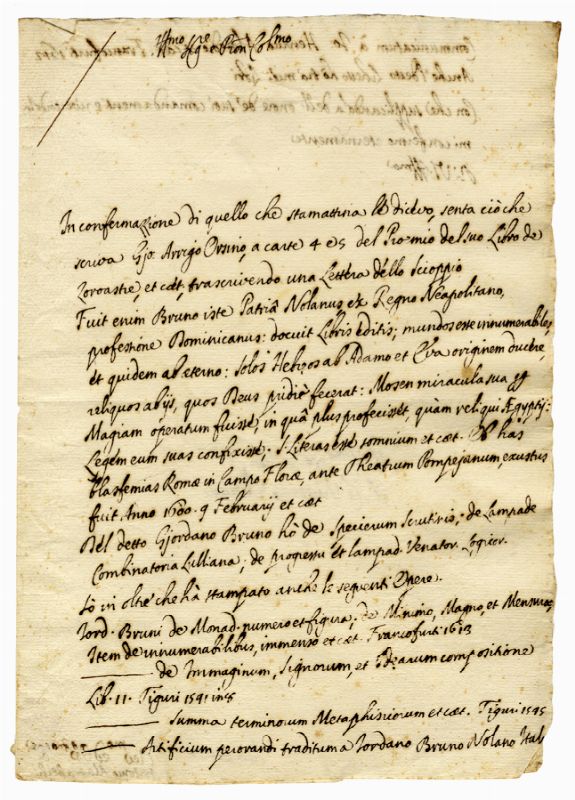 Jll.mo Sig.re Pron Col.mo
In confermazione di quello che stamattina le dicevo, senta ciò che
scriva Gjo: Arrigo Orsino, a carte 4 e 5 del Proemio del suo Libro de
Zoroastre, et cæt, trascrivendo una Lettera dello Scioppio
Fuit enim Bruno iste Patriâ Nolanus ex Regno Neapolitano,
professione Dominicanus: docuit Libris editis; mundos esse innumerabiles,
et quidem ab eterno: solos Hebreos ab Adamo et Eva originem ducere,
reliquos ab ijs, quos Deus pridie fecerat: Mosen miracula sua per
Magiam operatum fuisse; in quâ plus profecisset, quàm reliqui Ægyptij:
Legem eum suas confixisse, S. Literas esse somnium et cæt. Ob has
blasfemias Romæ in Campo Floræ, ante Theatrum Pompejanum, exustus
fuit Anno 1600. 9 Februarij et cæt
Del detto Gjordano Bruno hò de Specierum Scrutinio; de Lampade
Combinatoria Lulliana; de progressu et lampad. Venator. Logicor.
Sò in oltre che hà stampato anche le seguenti Opere.
Jord. Bruni de Monad. numero et figura; de Minimo, Magno, et Mensura;
Item de innumerabilibus, immenso et cæt. Francofurti 1613
de Immaginum, Signorum, et Idearum compositione
Lib. II. Tiguri 1591 in 8
Summa terminorum Metaphisicorum et cæt. Tiguri 1595
Artificium perorandi traditum a Jordano Bruno Nolano Ital